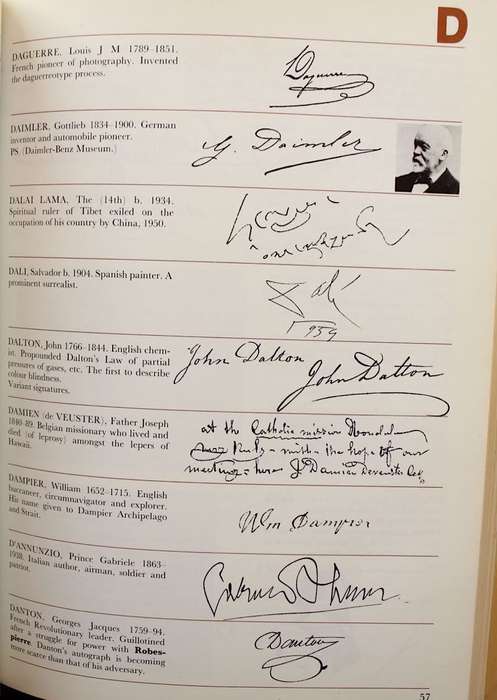 D
DAGUERRE, Louis J M 1789–1851.
French pioneer of photography. Invented
the daguerreotype process.
Daguerre
DAIMLER, Gottlieb 1834–1900. German
inventor and automobile pioneer.
PS. (Daimler-Benz Museum.)
G. Daimler
DALAI LAMA, The (14th) b. 1934.
Spiritual ruler of Tibet exiled on the
occupation of his country by China, 1950.
DALI, Salvador b. 1904. Spanish painter. A
prominent surrealist.
Dalí
1959
DALTON, John 1766–1844. English chem-
ist. Propounded Dalton's Law of partial
pressures of gases, etc. The first to describe
colour blindness.
Variant signatures.
John Dalton
John Dalton
DAMIEN (de VEUSTER), Father Joseph
1840–89. Belgian missionary who lived and
died (of leprosy) amongst the lepers of
Hawaii.
at the Catholic mission Honolulu
with the hope of our
meeting J. Damien Deveuster
DAMPIER, William 1652–1715. English
buccaneer, circumnavigator and explorer.
His name given to Dampier Archipelago
and Strait.
Wm Dampier
D'ANNUNZIO, Prince Gabriele 1863–
1938. Italian author, airman, soldier and
patriot.
DANTON, Georges Jacques 1759–94.
French Revolutionary leader. Guillotined
after a struggle for power with Robes-
pierre. Danton's autograph is becoming
more scarce than that of his adversary.
Danton
57